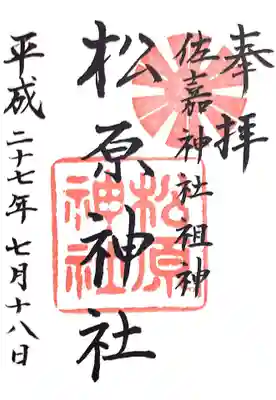 奉拝
佐嘉神社祖神
松原神社
松原
神社
平成二十七年七月十八日